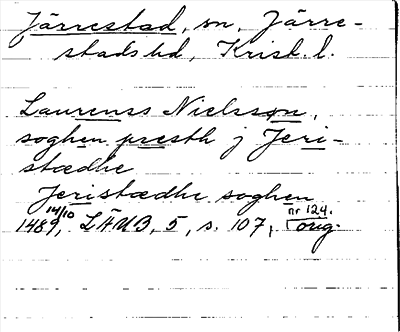 Järrestad, sn, Järre-
stads hd, Krist. l.
Laurenss Nielsson,
soghen presth j Jeri-
stædhe
Jeristædhe soghen
14/10 nr 124.
1489, LÄUB, 5, s. 107, orig.